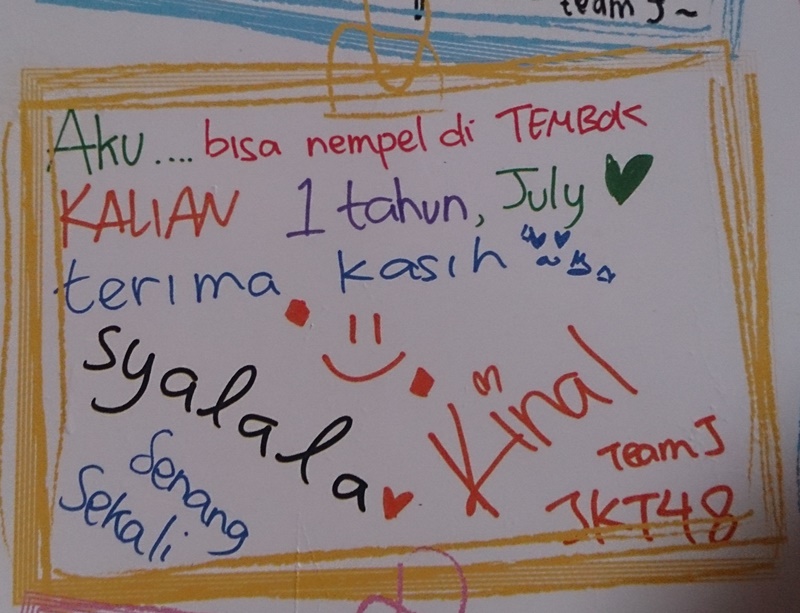 team J ~
Aku.... bisa nempel di TEMBOK
KALIAN 1 tahun, July
terima kasih
syalala
Kinal
Senang
Sekali
Team J
JKT48